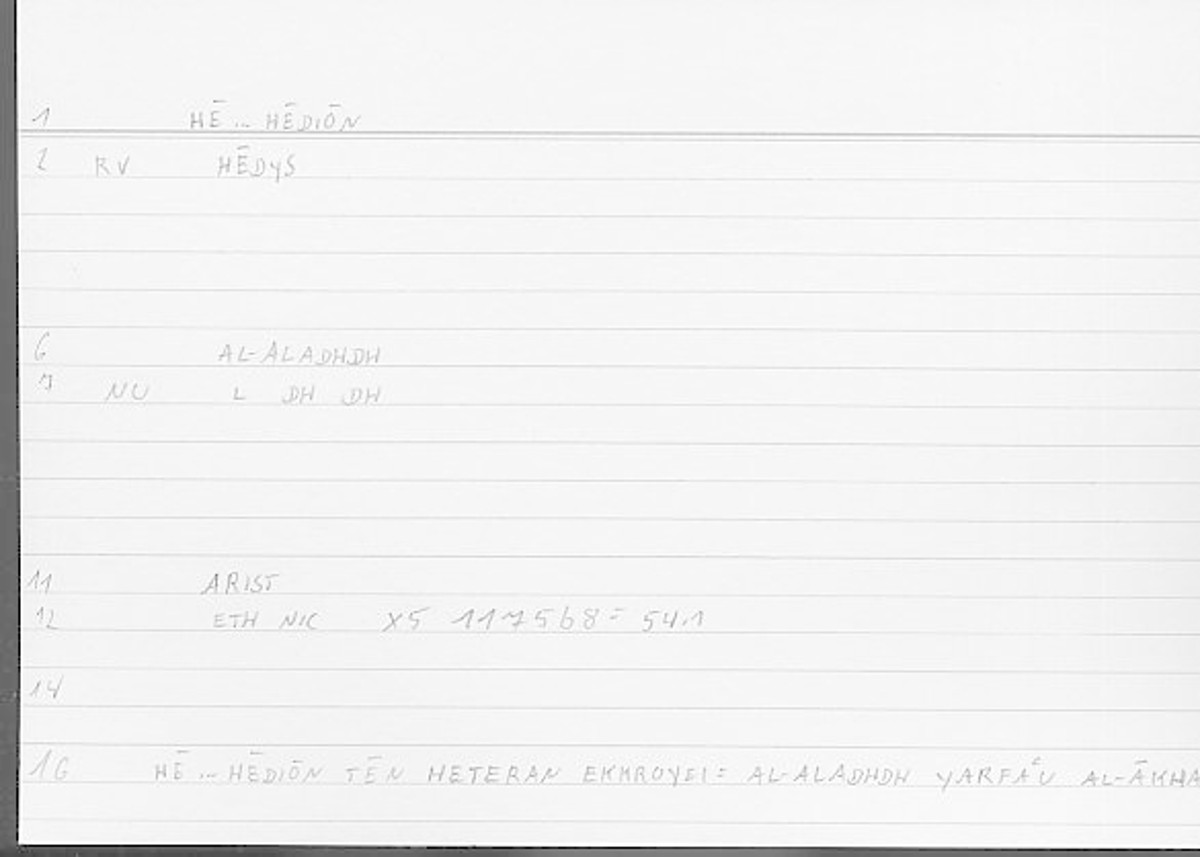 1 HĒ ... HĒDIŌN
2 RV HĒDYS
6 AL-ALADHDH
7 NU L DH DH
11 ARIST
12 ETH NIC X5 1175b8 = 541
14
16 HĒ ... HĒDIŌN TĒN HETERAN EKKROYEI = AL-ALADHDH YARFAʿU AL-ĀKHA